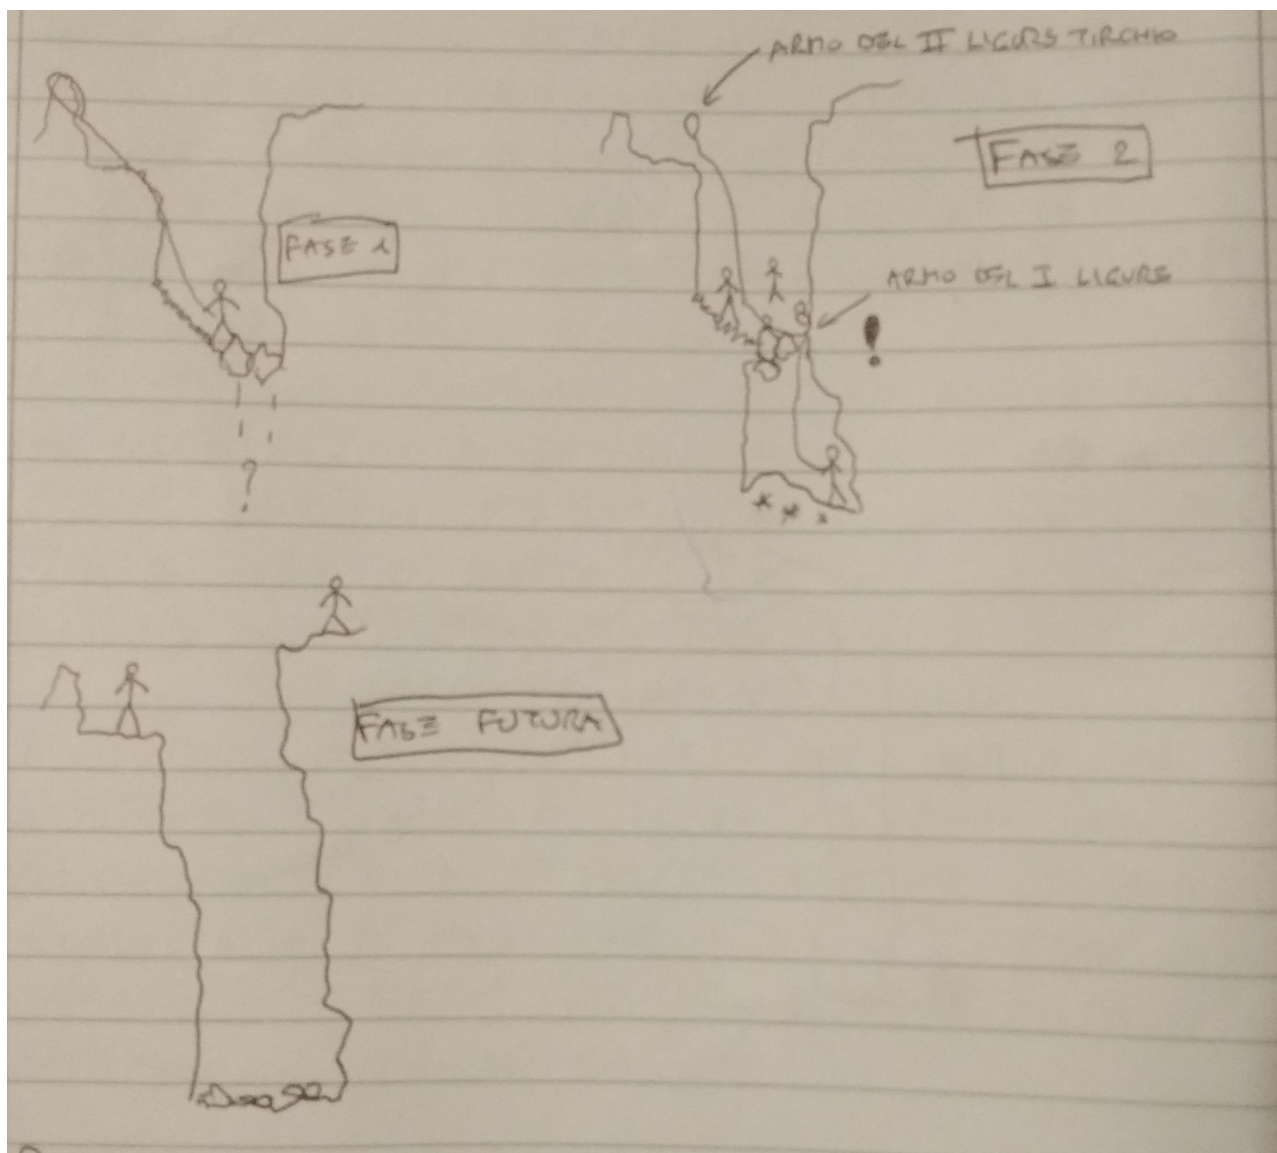 ARMO DEL II LIGURE TIRCHIO
FASE 2
FASE 1
ARMO DEL I LIGURE
!
?
FASE FUTURA